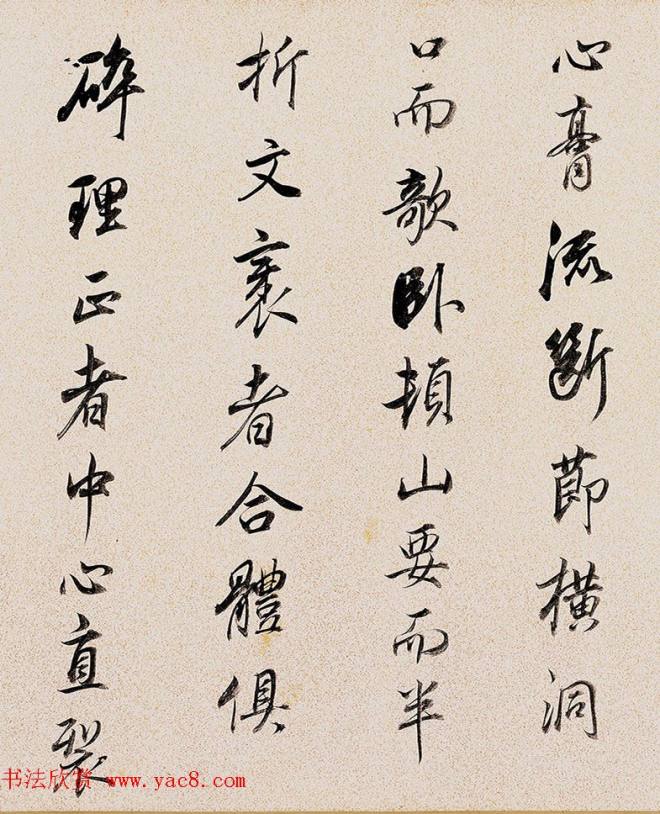 心膏流斷節橫洞
口而欹卧頓山要而半
折文裹者合體俱
碎理正者中心直裂
书法欣赏 www.yac8.com